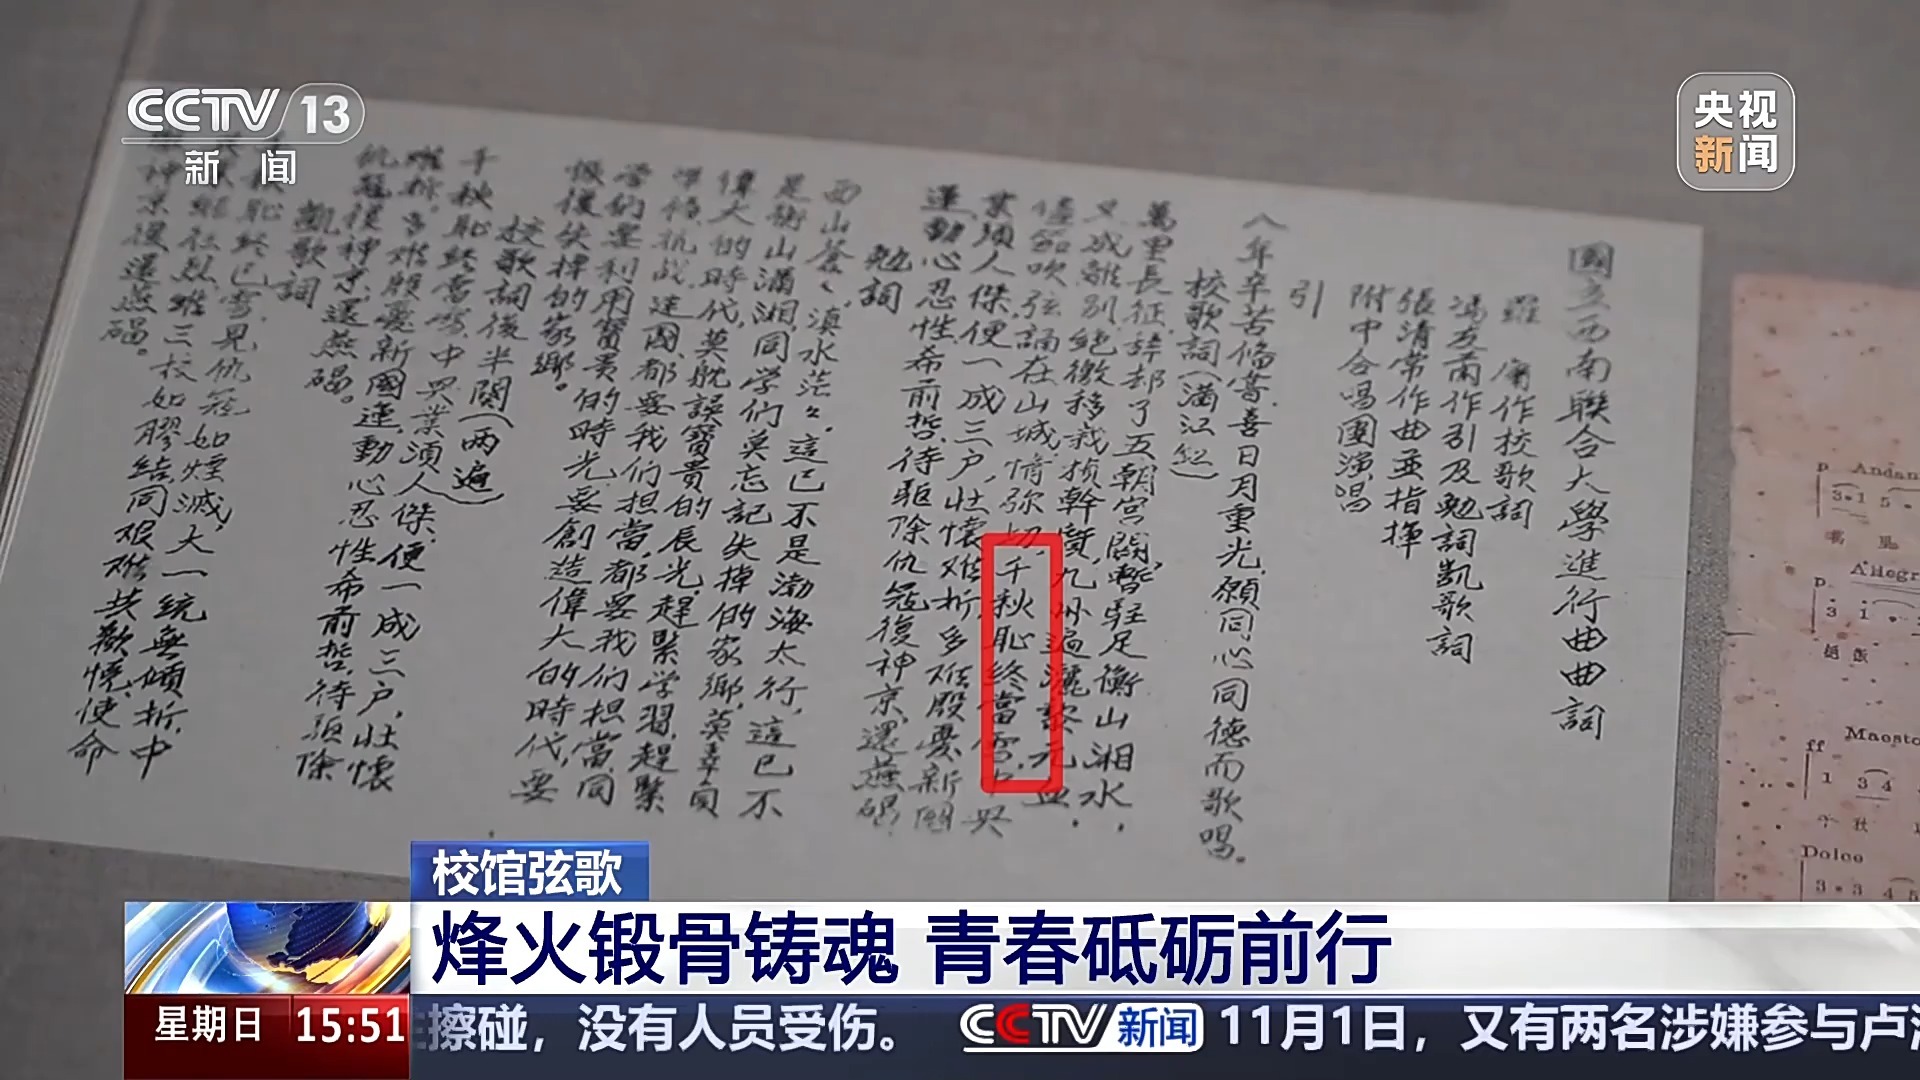 CCTV 13
新闻
央视
新闻
國立西南联合大學進行曲曲詞
羅庸作校歌詞
馮友蘭作引及勉詞凱歌詞
張清常作曲並指揮
附中合唱團演唱
引
八年辛苦備嘗,喜日月重光,願同心同德而歌唱。
校歌詞(滿江紅)
萬里長征,辭却了五朝宮闕,暫駐足衡山湘水,
又成離別,絕徼移栽楨幹質,九州遍灑黎元血。
儘笳吹弦誦在山城,情弥切,千秋恥,終當雪,中興
業,須人傑,便一成三户,壯懷难折,多难殷憂新國
運,動心忍性希前哲,待驱除仇寇復神京,還燕碣。
勉詞
西山蒼々,滇水茫々,這已不是渤海太行,這已不
是衡山瀟湘,同学们莫忘記失掉的家鄉,莫辜負
偉大的時代,莫躭誤寶貴的辰光,趕緊学習,趕緊
準備,抗战建國,都要我们担當,都要我们担當,同
学们要利用寶貴的時光,要創造偉大的時代,要
恢復失掉的家鄉。
校歌詞後半闋(两遍)
千秋恥,終當雪,中興業,須人傑,便一成三户,壯懷
难折。多难殷憂新國運,動心忍性希前哲,待驱除
仇寇復神京,還燕碣。
凱歌詞
恥,終已雪,見仇寇如煙滅,大一統無傾折,中
維壯烈,維三校如膠結,同艰难共歡悦,使命
神京復還燕碣。
p Andan
3·1 5
Allegr
p 3 1
Maesto
ff 1 3 4
千秋
Dolce
3·3 4 5
校馆弦歌
烽火锻骨铸魂 青春砥砺前行
星期日 15:51
擦碰，没有人员受伤。 CCTV新闻 11月1日，又有两名涉嫌参与卢